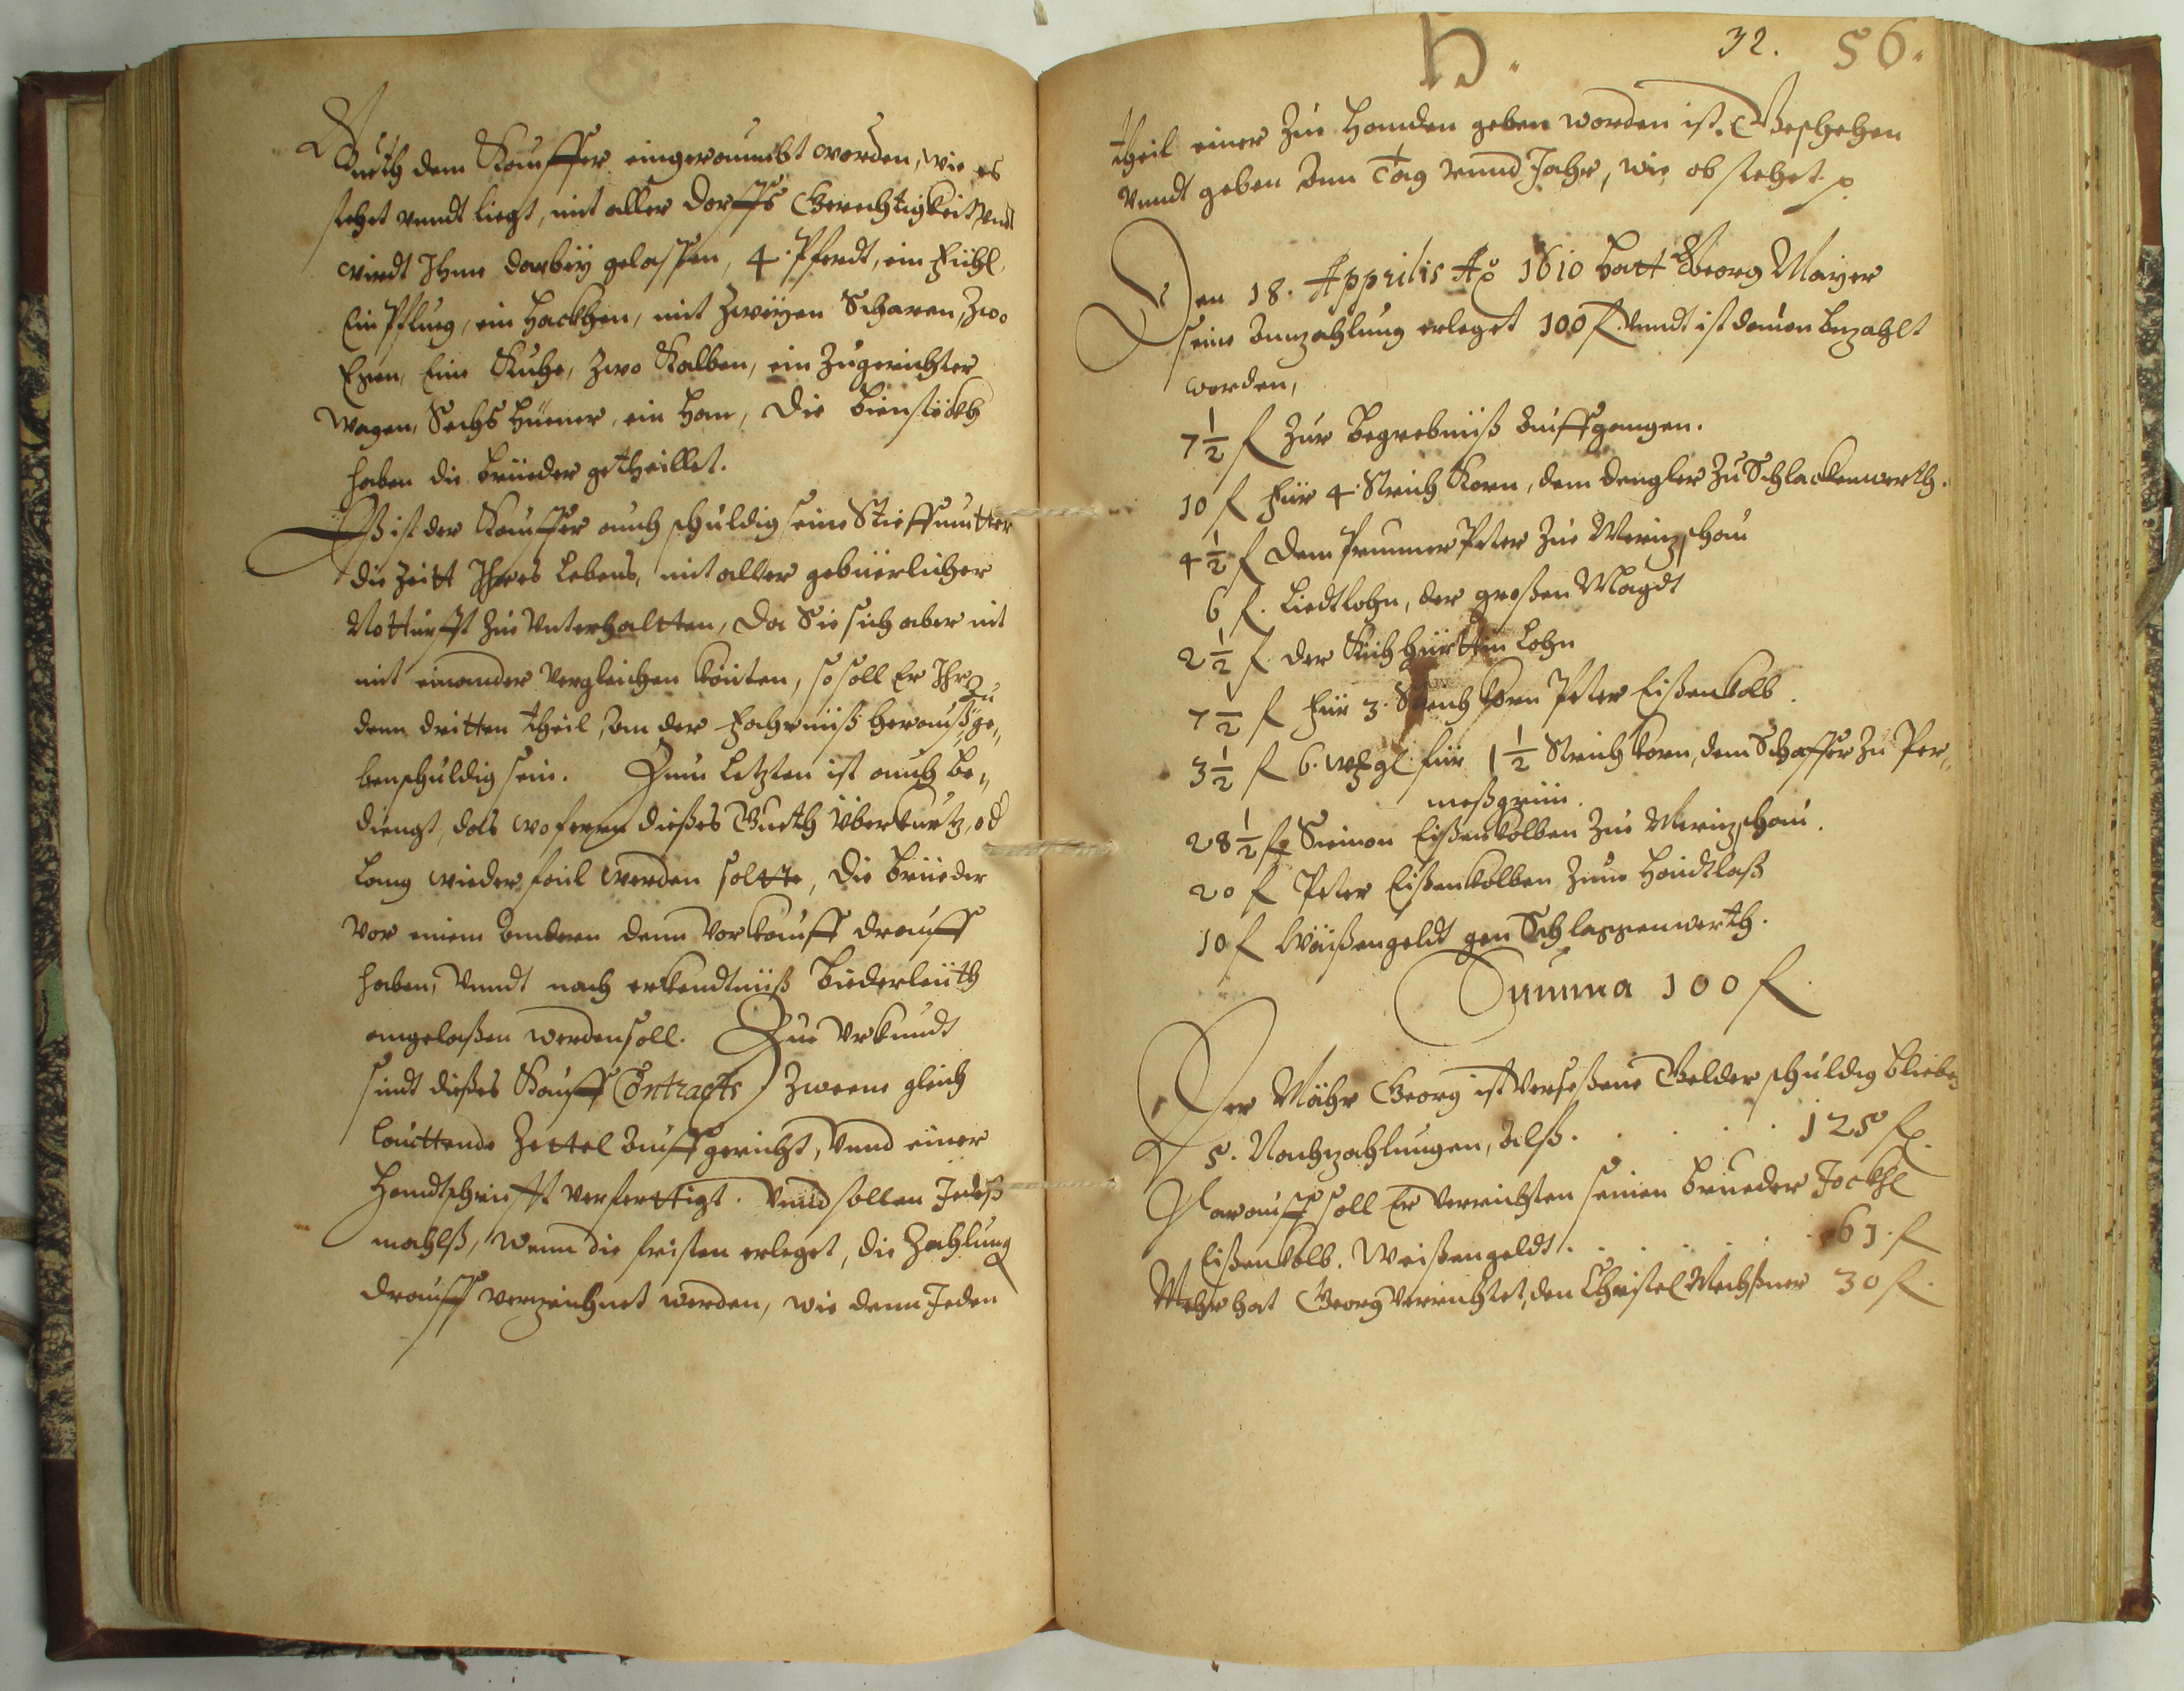 Gueth dem Kauffer eingeraumbt worden, wie es
stehet vnndt liegt, mit aller dorffs Gerechtigkeit, vndt
wirdt Ihme darbey gelassen, 4. Pferdt, ein Fühl,
Ein Pflueg, ein Hackhen, mit zweyen Scharen, Zwo
Egen, Eine Kuhe, zwo Kalben, ein Zugerichter
Wagen, Sechs Hüener, ein Han, die Bienstöckh
haben die Brüeder getheillet.
Eß ist der Kauffer auch schuldig seine Stieffmutter
die Zeitt Ihres Lebens, mit aller gebüerlicher
Notturfft zue Vnterhaltten, da Sie sich aber nit
mit einander Vergleichen könten, so soll Er Ihr
denn dritten theil, von der Fahrnüß herauß zu ge„
ben schuldig sein. Zum Letzten ist auch be„
diengt, das wofernn dießes Gueth Vber kurtz, od
lang wieder feil werden soltte, die Brüeder
vor einem anderen denn Vorkauff drauff
haben, Vnndt nach erkendtnüß Biederleüth
angelaßen werden soll. Zue Vrkundt
sindt dießes Kauff Contracts Zweene gleich
lauttende Zettel auffgericht, Vnnd einer
Handtschriefft verferttigt. Vnnd sollen Jedeß
mahlß, Wenn die fristen erleget, die Zahlung
drauff verzeichnet werden, wie denn Jeden
H.
32. 56.
theil einer Zue Handen geben worden ist. Geschehen
Vnndt geben Ann Tag vnnd Jahr, wie ob stehet. p
Den 18. Apprilis Ao 1610 hatt Georg Mayer
seine Annzahlung erleget 100 f. Vnndt ist dauon bezahlt
worden,
7½ f Zur Begrebnüß auffgangen.
10 f Für 4. Streich Korn, dem dengler Zu Schlackenwerth.
4½ f dem Prunner Peter Zue Weriz,schau
6 f. Liedtlohn, der großen Magdt
2½ f. der Kühhürttin Lohn
7½ f Für 3. Streich korn Peter Eißenkolb.
3½ f 6. wßgl. für 1½ Streich korn, dem Schaffer Zu Per„
meßgrün.
28½ f Siemon Eißenkolben Zue Weriz,schau.
20 f Peter Eißenkolben Zum Handtlaß
10 f Waißengeldt gen Schlaggenwerth.
Summa 100 f.
Der Mayr Georg ist Verseßene Gelder schuldig blieben
5. Nachzahlungen, Alß. . . . . 125 f.
Darauff soll Er Verrichten seinen Brueder Jockhl
Eißenkolb. Weißengeldt. . . . . . 61. f
Mehr hat Georg Verrichtet, den Christel Wechßner 30 f.